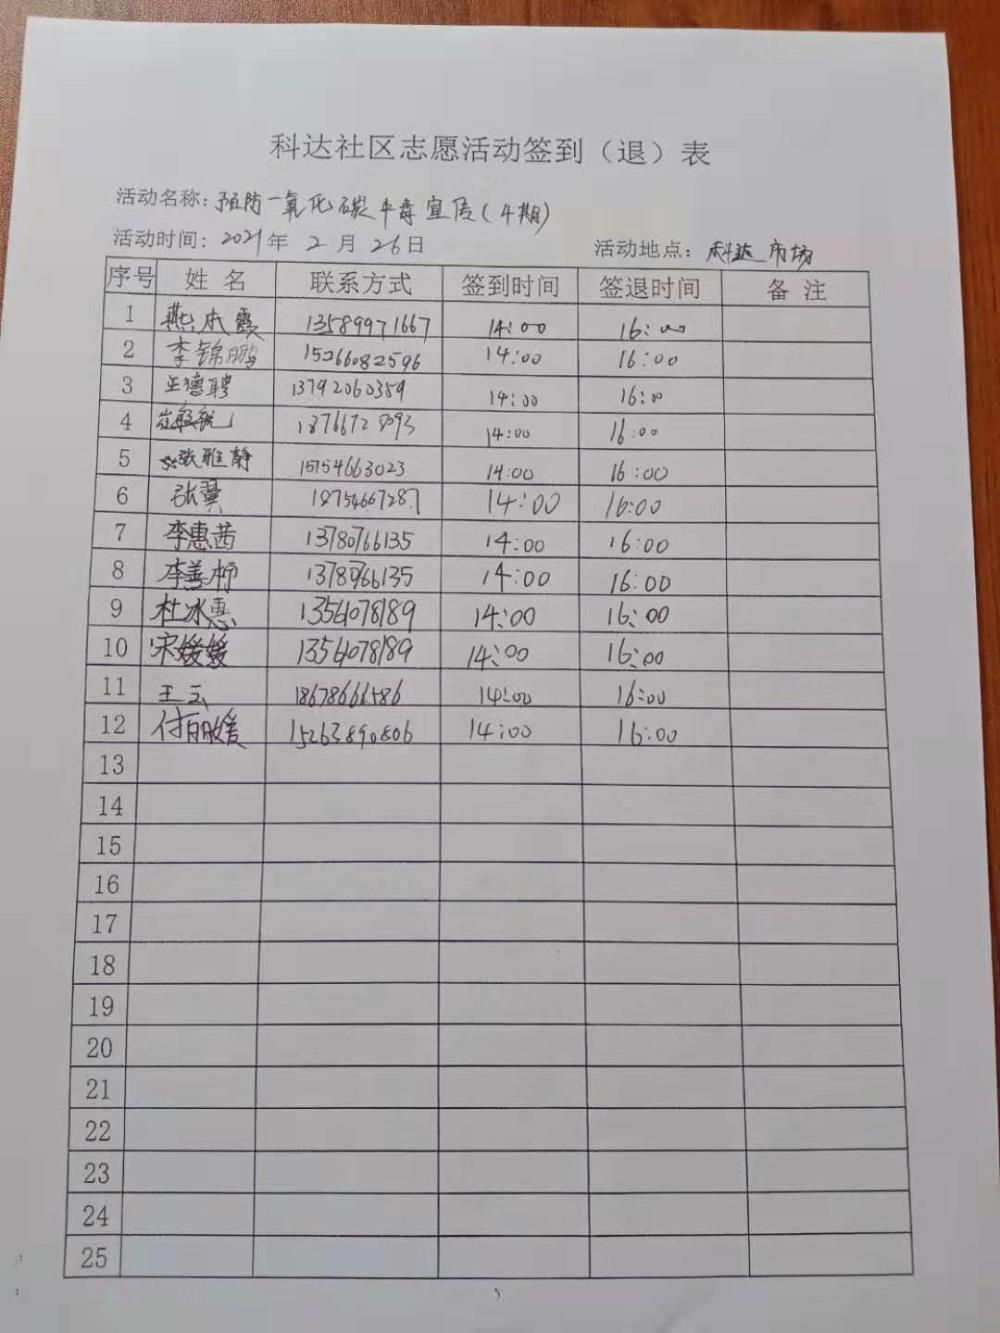 科达社区志愿活动签到（退）表
活动名称：预防一氧化碳中毒宣传（4期）
活动时间：2021年 2月 26日 活动地点：科达市场
序号 姓名 联系方式 签到时间 签退时间 备注
1 燕本霞 13589971667 14:00 16:00
2 李锦鹏 15266082596 14:00 16:00
3 王德聘 13792060359 14:00 16:00
4 14:00 16:00
5 张雅静 15754663023 14:00 16:00
6 张翼 18754667287 14:00 16:00
7 李惠茜 13780766135 14:00 16:00
8 李善柳 13780766135 14:00 16:00
9 杜冰惠 13561078189 14:00 16:00
10 宋媛媛 13561078189 14:00 16:00
11 王云 18678666586 14:00 16:00
12 付丽媛 15263890806 14:00 16:00
13
14
15
16
17
18
19
20
21
22
23
24
25